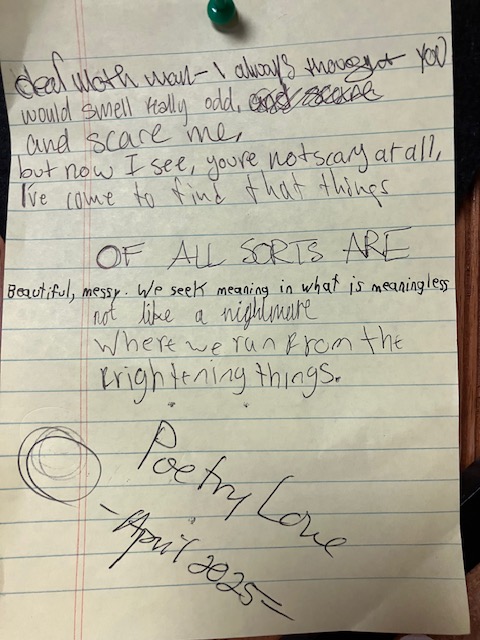 deaf moth man - I always thought you
would smell really odd, and scare
and scare me,
but now I see, you're not scary at all,
I've come to find that things
OF ALL SORTS ARE
Beautiful, messy. We seek meaning in what is meaningless
not like a nightmare
where we run from the
frightening things.
Poetry Love
- April 2025 -